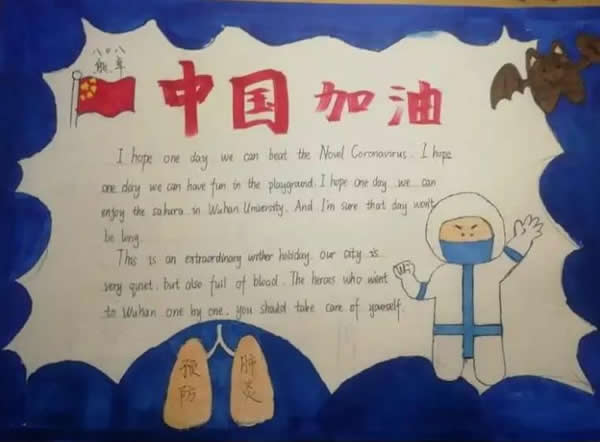 八〇八
中国加油
I hope one day we can beat the Novel Coronavirus. I hope
one day we can have fun in the playground. I hope one day we can
enjoy the sakura in Wuhan University. And I'm sure that day won't
be long.
This is an extraordinary holiday. our city is
very quiet, but also full of blood. The heroes who went
to Wuhan one by one, you should take care of yourself.
预防
肺炎